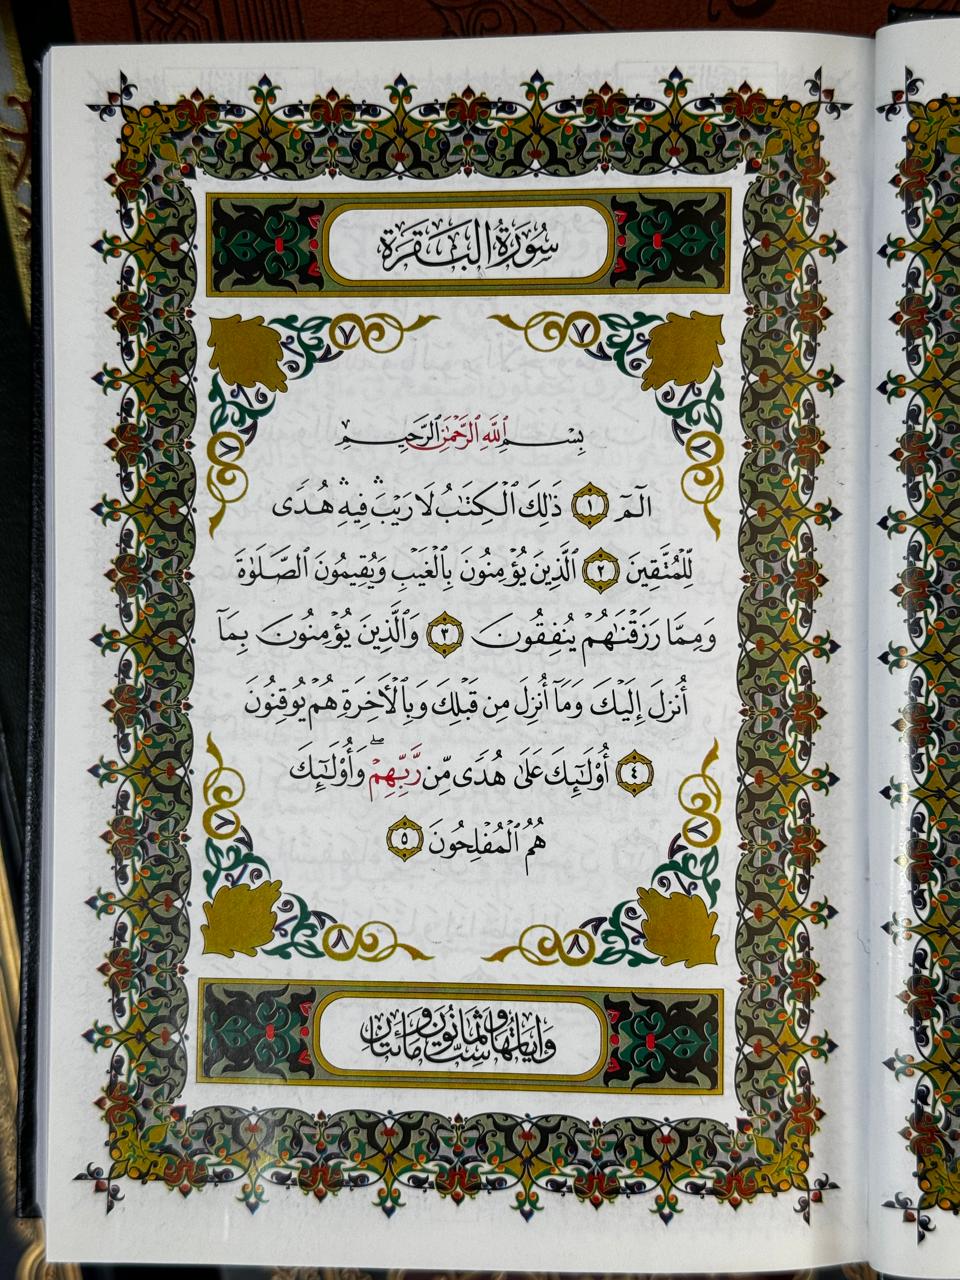 سُورَةُ البَقَرَةِ
بِسۡمِ ٱللَّهِ ٱلرَّحۡمَٰنِ ٱلرَّحِيمِ
الٓمٓ ١ ذَٰلِكَ ٱلۡكِتَٰبُ لَا رَيۡبَۛ فِيهِۛ هُدٗى
لِّلۡمُتَّقِينَ ٢ ٱلَّذِينَ يُؤۡمِنُونَ بِٱلۡغَيۡبِ وَيُقِيمُونَ ٱلصَّلَوٰةَ
وَمِمَّا رَزَقۡنَٰهُمۡ يُنفِقُونَ ٣ وَٱلَّذِينَ يُؤۡمِنُونَ بِمَآ
أُنزِلَ إِلَيۡكَ وَمَآ أُنزِلَ مِن قَبۡلِكَ وَبِٱلۡأٓخِرَةِ هُمۡ يُوقِنُونَ
٤ أُوْلَٰٓئِكَ عَلَىٰ هُدٗى مِّن رَّبِّهِمۡۖ وَأُوْلَٰٓئِكَ
هُمُ ٱلۡمُفۡلِحُونَ ٥
وَآيَاتُهَا سِتٌّ وَثَمَانُونَ وَمَائَتَانِ